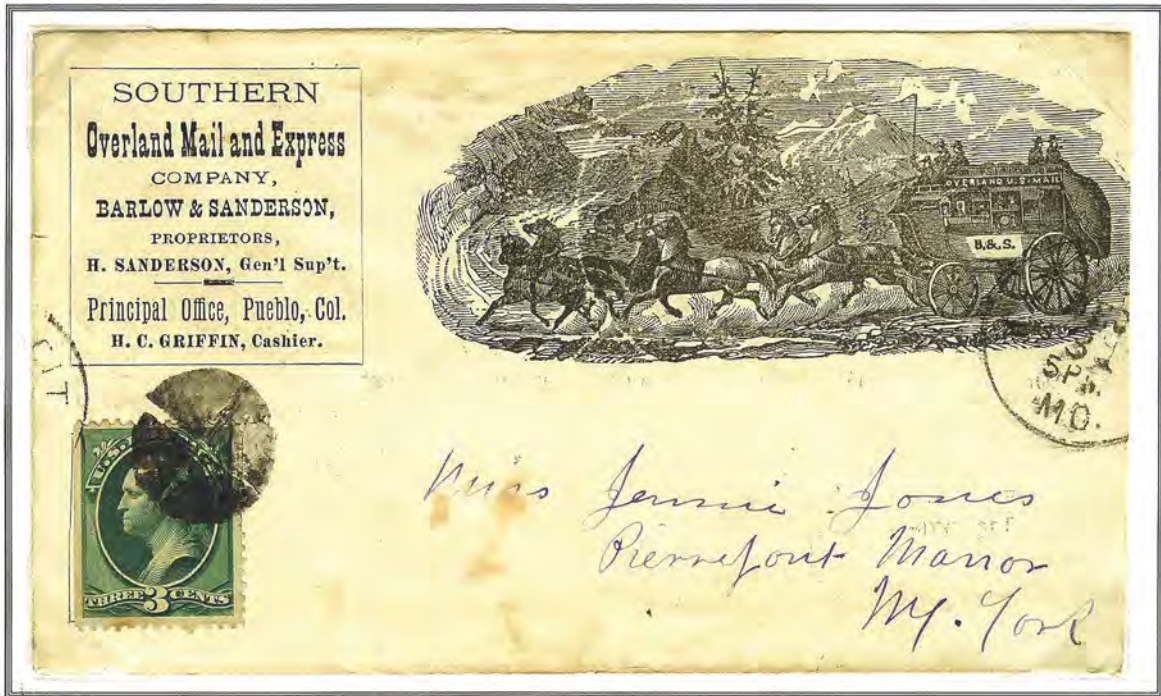 SOUTHERN
Overland Mail and Express
COMPANY,
BARLOW & SANDERSON,
PROPRIETORS,
H. SANDERSON, Gen'l Sup't.
Principal Office, Pueblo, Col.
H. C. GRIFFIN, Cashier.
OVERLAND U.S. MAIL
B. & S.
MO.
THREE 3 CENTS
Miss Jennie Jones
Pierrepont Manor
NY. York